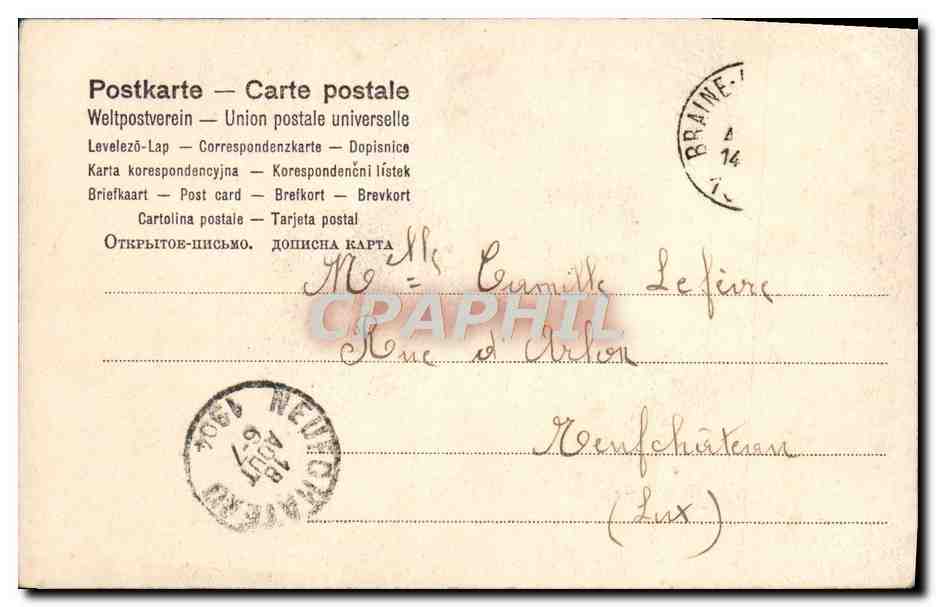 Postkarte — Carte postale
Weltpostverein — Union postale universelle
Levelező-Lap — Correspondenzkarte — Dopisnice
Karta korespondencyjna — Korespondenční lístek
Briefkaart — Post card — Brefkort — Brevkort
Cartolina postale — Tarjeta postal
Открытое-письмо. дописна карта
BRAINE-
14
Mlle Camille Lefèvre
CPAPHIL
Rue d'Arlon
NEUFCHATEAU 1904
18
AOUT
6-7
Neufchâteau
(Lux)